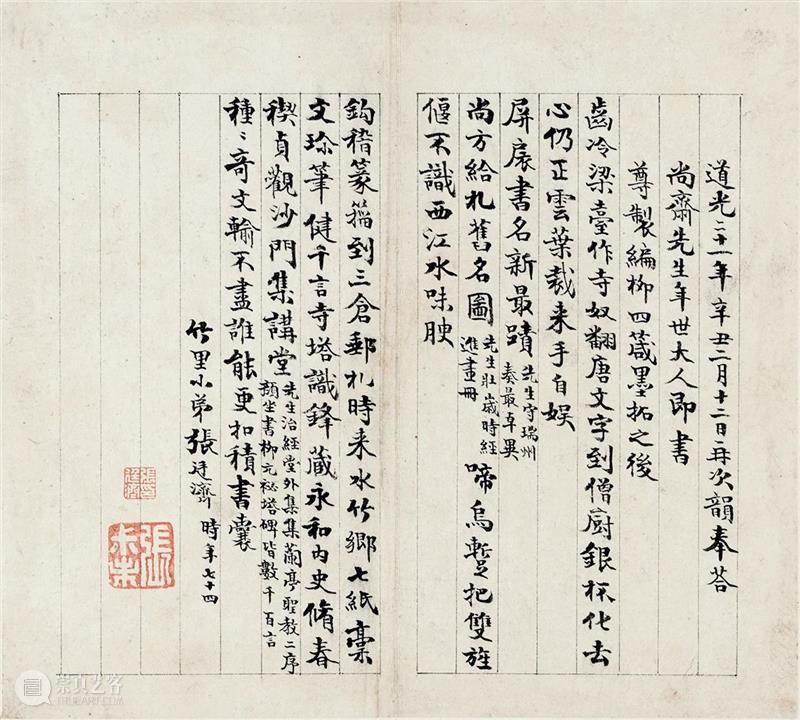 道光二十一年辛丑二月十二日再次韻奉荅
尚齋先生年世大人即書
尊製編柳四箴墨拓之後
齒冷梁臺作寺奴翻唐文字到僧廚銀杯化去
心仍正雲葉裁来手自娱
屏扆書名新最蹟先生守瑞州奏最卓異
尚方給札舊名圖先生壯歲時經進畫冊啼烏蹔把雙旌
偃不識西江水味腴
鈎稽篆籀到三倉郵札時来水竹鄉七紙槀
文珎筆健千言寺塔識鋒藏永和内史脩春
禊貞觀沙門集講堂先生治經堂外集集蘭亭聖教二序顔坐書柳元祕塔碑皆數千百言
種〻奇文輸不盡誰能更扣積書囊
竹里小弟張廷濟時年七十四
張廷濟
張尗未
崇真艺客
TRUEART.COM